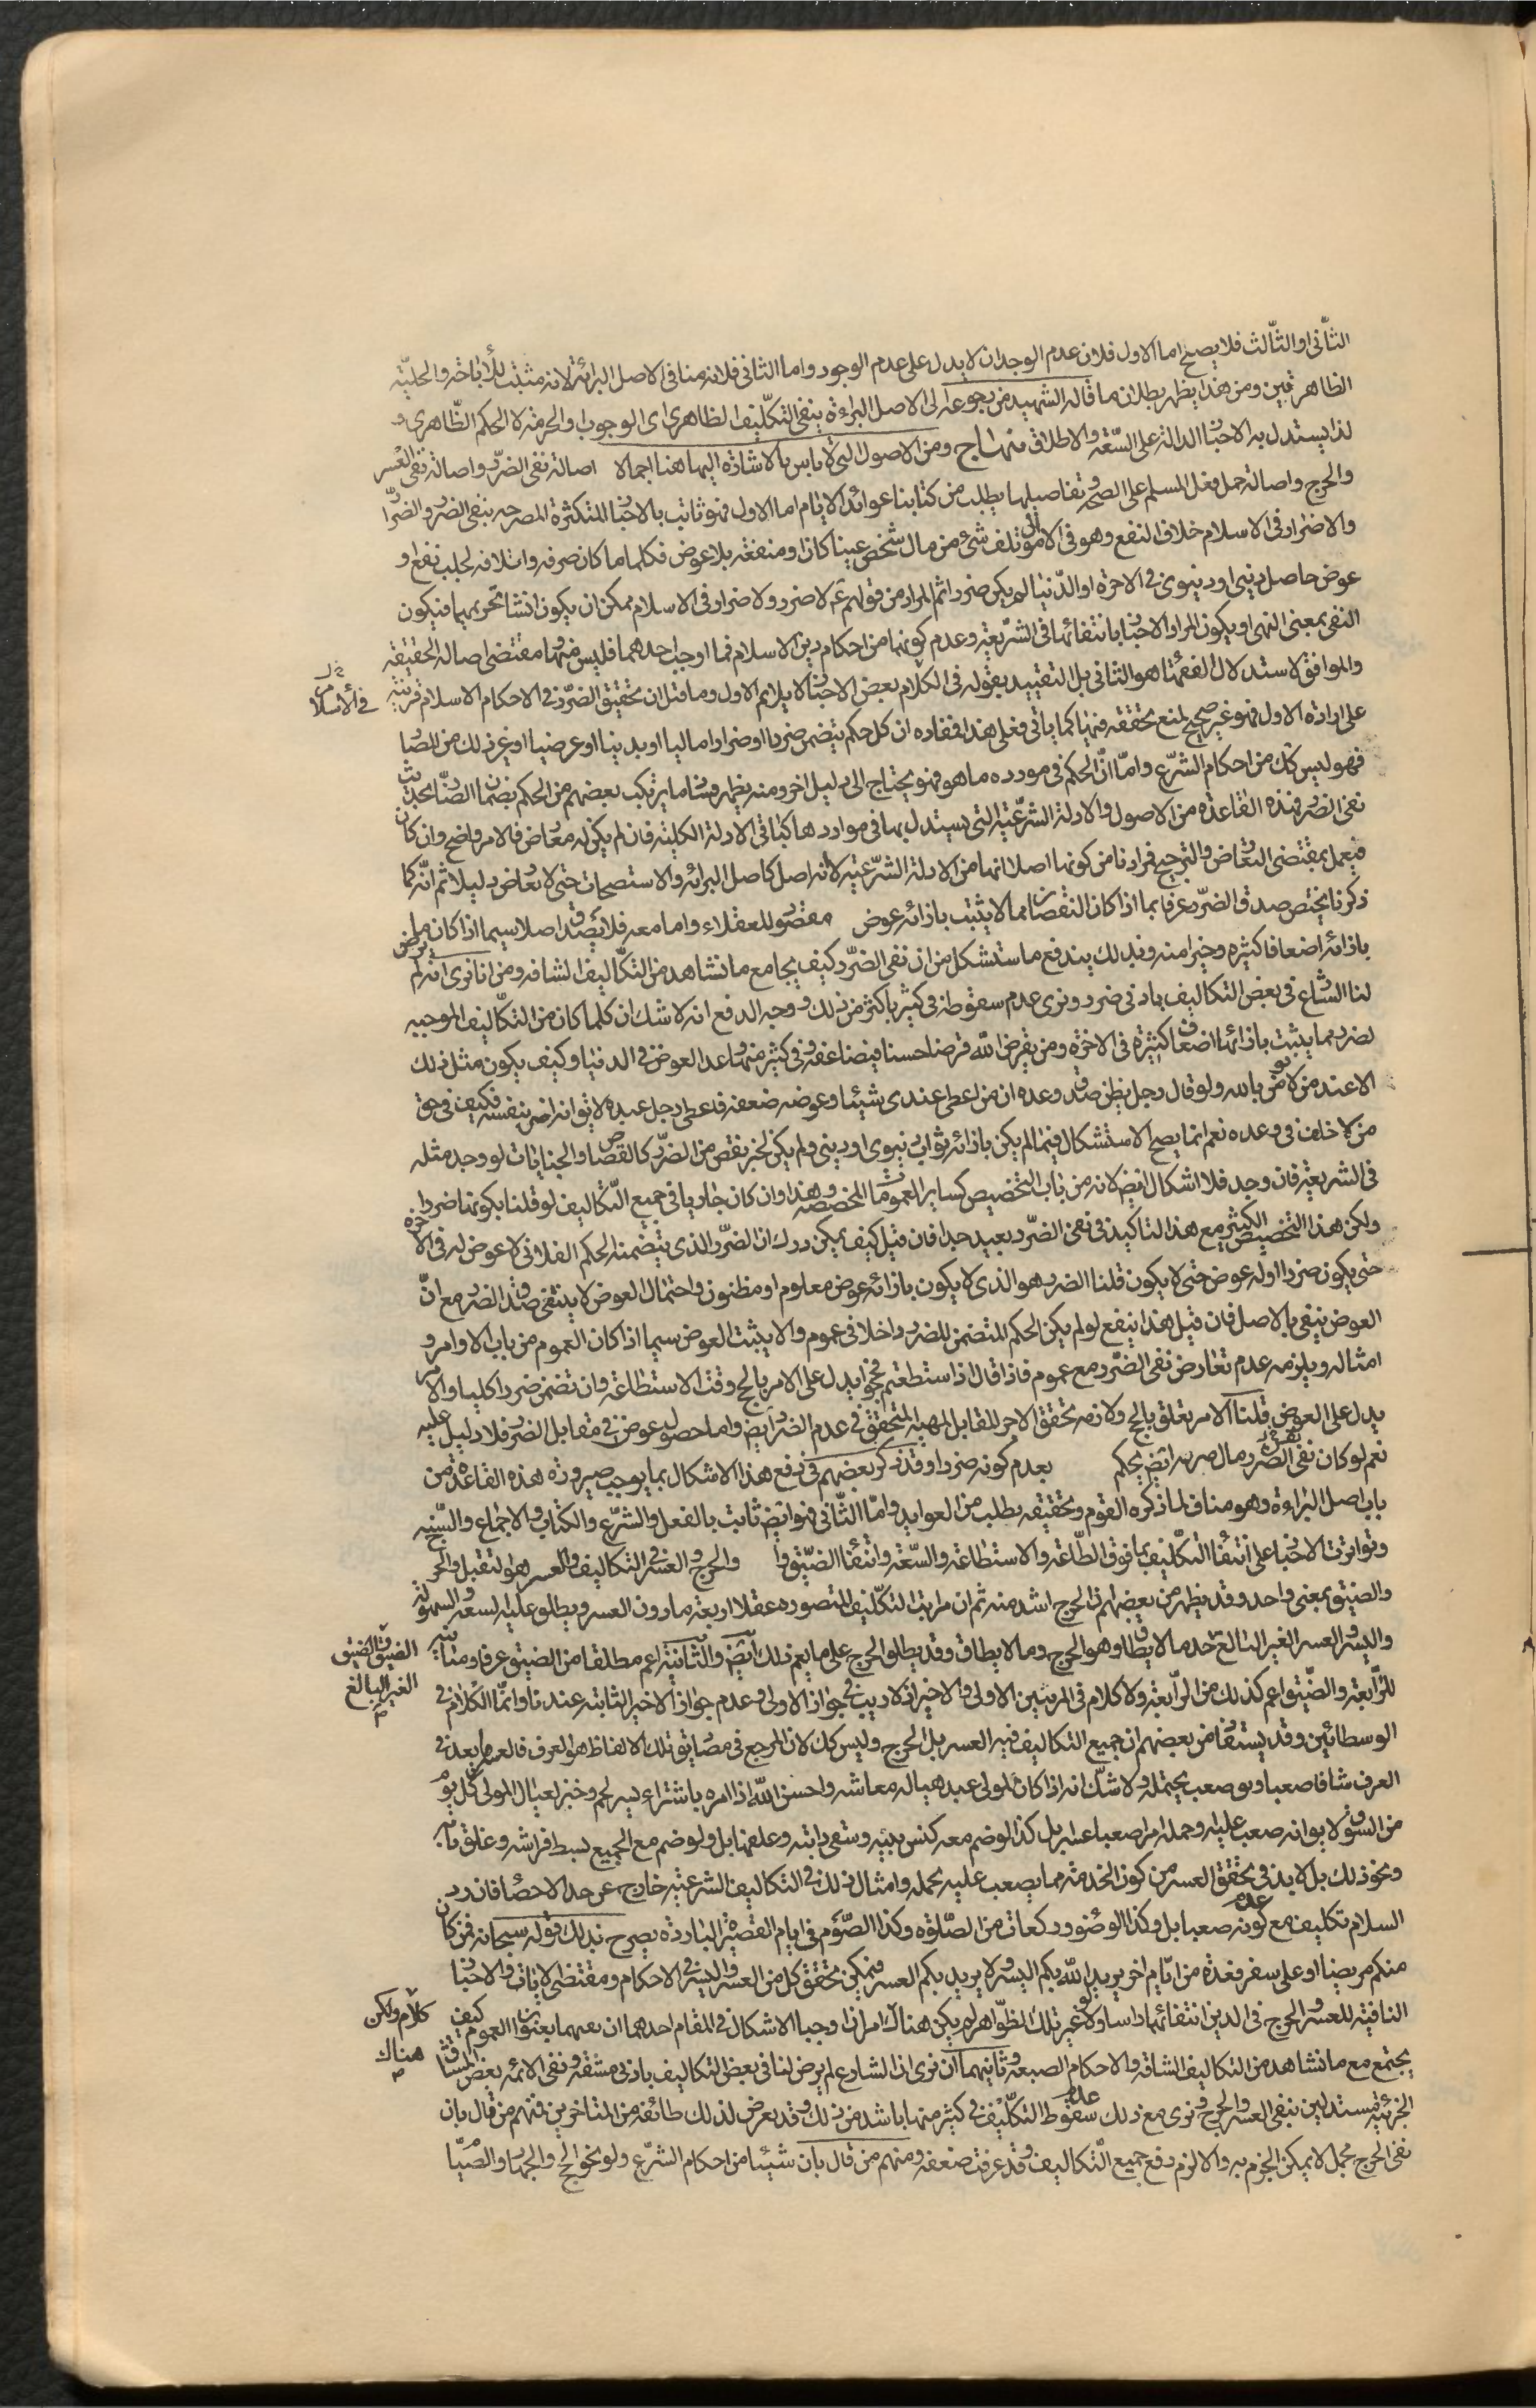 الثانی او الثالث فلا یصح اما الاول فلان عدم الوجدان لا یدل علی عدم الوجود واما الثانی فلانه مناف الاصل البرائة لانه مثبت للأباحة والحلیّة
الظاهرتین ومن هذا یظهر بطلان ما قاله الشهید من رجوعه الی الاصل البراءة ینفی التکلیف الظاهری ای الوجوب والحرمة لا الحکم الظاهری و
لذا یستدل به الاخبار الدالة علی السّعة والاطلاق منهاج ومن الاصول التی لا باس بالاشارة الیها هنا اجمالا اصالة نفی الضرر واصالة نفی العُسر
والحرج واصالة حمل فعل المسلم علی الصحة وتفاصیلها یطلب من کتابنا عوائد الایام اما الاول فهو ثابت بالاخبار المتکثرة المصرحة بنفی الضرر والضرار
والاضرار فی الاسلام خلاف النفع وهو فی الاموال تلف شیٔ من مال شخص عینا کان او منفعة بلا عوض فکلما ما کان صرفه واتلافه لجلب نفع او
عوض حاصل دینی او دنیوی فی الاخرة او الدّنیا لم یکن ضررا ثم المراد من قولهم ع لا ضرر ولا ضرار فی الاسلام یمکن ان یکون انشا تحریمهما فیکون
النفی بمعنی النهی او یکون المراد الاخبار بانتفائها فی الشریعة وعدم کونها من احکام دین الاسلام فما اوجب احدهما فلیس منها ومقتضی اصالة الحقیقة
والموافق لاستدلال الفقهاء هو الثانی بل التقیید بقوله فی الکلام بعض الاخبار لا یلایم الاول وما قیل ان تحقیق الضرر فی الاحکام الاسلام قرینة
فی الأسلام خ ل
علی ارادة الاول فهو غیر صحیح لمنع تحققه فیها کما یاتی فعلی هذا فمفاده ان کل حکم یتضمن ضررا او ضرارا مالیا او بدنیا او عرضیا او غیر ذلک من المضار
فهو لیس کک من احکام الشرع واما انّ الحکم فی مورده ما هو فهو یحتاج الی دلیل اخر ومنه یظهر فساد ما یرتکب بعضهم من الحکم بضمان الضار بحدیث
نفی الضرر فهذه القاعدة من الاصول والادلة الشرعیة التی یستدل بها فی مواردها کباقی الادلة الکلیة فان لم یکن له معارض فالامر واضح وان کان
فیعمل بمقتضی التعارض والترجیح فمرادنا من کونها اصلا انها من الادلة الشرعیة لا انه اصل کاصل البرائة والاستصحاب حتی لا یعارض دلیلا ثم انّه کما
ذکرنا یختص صدق الضرر عرفا بما اذا کان النقصان مما لا یثبت بازائه عوض مقصود للعقلاء واما معه فلا یصدق اصلا سیما اذا کان ما
بازائه اضعافا کثیرة وخیرا منه وبذلک یندفع ما ستشکل من ان نفی الضرر کیف یجامع ما نشاهد من التکالیف الشاقة ومن انا نری انه لم یرض
لنا الشارع فی بعض التکالیف بادنی ضرر ونری عدم سقوطه فی کثیر باکثر من ذلک ووجه الدفع انه لا شک ان کلما کان من التکالیف الموجبة
لضرر مما یثبت بازائها اضعاف کثیرة فی الاخرة ومن یقرض الله قرضا حسنا فیضاعفه وفی کثیر منها وعد العوض فی الدنیا وکیف یکون مثل ذلک
الا عند من لا یؤمن بالله ولو قال رجل یظن صدق وعده ان من اعطی عندی شیئا وعوضه ضعفه فاعطی رجل عبده لا یق انه اضر بنفسه فکیف فی حق
من لا خلف فی وعده نعم انما یصح الاستشکال فیما لم یکن بازائه ثواب دنیوی او دینی ولم یکن لخیر نقص من الضرر کالقصاص والجنایات لو وجد مثله
فی الشریعة فان وجد فلا اشکال ایض لانه من باب التخصیص کسایر العمومات المخصصة وهذا وان کان جاریا فی جمیع التکالیف لو قلنا بکونها ضررا
ولکن هذا التخصیص الکثیر مع هذا التاکید فی نفی الضرر بعید جدا فان قیل کیف یمکن درک ان الضرر الذی یتضمنه الحکم الفلانی لا عوض له فی الاخرة
حتی یکون ضررا او له عوض حتی لا یکون قلنا الضرر هو الذی لا یکون بازائه عوض معلوم او مظنون واحتمال العوض لا ینتفی صدق الضرر مع انّ
العوض ینفی بالاصل فان قیل هذا ینفع لو لم یکن الحکم المتضمن للضرر داخلا فی عموم والا یثبت العوض سیما اذا کان العموم من باب الاوامر و
امثاله ویلزمه عدم تعارض نفی الضرر مع عموم فاذا قال اذا استطعتم فحجوا یدل علی الامر بالحج وقت الاستطاعة وان تضمن ضررا کلیا والامر
یدل علی العوض قلنا الامر تعلق بالحج ولازمه تحقق الاجر المقابل المهیة المتحقق فی عدم الضرر ایض واما حصول عوض فی مقابل الضرر فلا دلیل علیه
نعم لو کان نفی الضرر ایض یحکم بعدم کونه ضررا وقد ذکر بعضهم فی دفع هذا الاشکال بما یوجب صیرورة هذه القاعدة من
باب اصل البراءة وهو مناف لما ذکره القوم وتحقیقه یطلب من العواید واما الثانی فهو ایض ثابت بالعقل والشرع والکتاب والاجماع والسنة
وتواترت الاخبار علی انتفاء التکلیف بما فوق الطاقة والاستطاعة والسّعة وانتفاء الضیق والحرج والعسر فی التکالیف والعسر هو الثقیل والحرج
والضیق بمعنی واحد وقد یظهر من بعضهم ان الحرج اشد منه ثم ان مراتب التکلیف المتصورة عقلا اربعة ما دون العسر ویطلق علیه السعة والسهولة
والیسر والعسر الغیر البالغ حد ما لا یطاق وهو الحرج وما لا یطاق وقد یطلق الحرج علی ما یعم ذلک ایض والثانیة اعم مطلقا من الضیق عرفا ومنافیة
الضیق والضیق
الغیر البالغ
للرابعة والضیق اعم کذلک من الرابعة ولا کلام فی المرتبتین الاولی والاخیرة اذ لا ریب فی جواز الاولی وعدم جواز الاخیر الثابتة عندنا وانما الکلام فی
الوسطائین وقد یستفاد من بعضهم ان جمیع التکالیف فیه العسر بل الحرج ولیس کک لان المرجع فی مصادیق تلک الالفاظ هو العرف فالعسر ما یعد فی
العرف شاقا صعبا ویق صعب یحتمله ولا شک انه اذا کان لمولی عبد هیا له معاشه واحسن الله اذا امره باشتراء یسیر لحم وخبز لعیال المولی کل یوم
من السوق لا یق انه صعب علیه وحمله امرا صعبا عسرا بل کذا لو ضم معه کنس بیته وسقی دابته وعلفها بل ولو ضم مع الجمیع لبسط فراشه وغلق بابه
ونحو ذلک بل لا بد فی تحقق العسر من کون الخدمة مما یصعب علیه تحمله وامثال ذلک فی التکالیف الشرعیة خارج عن حد الاحصاء فان رد
السلام تکلیف مع عدم کونه صعبا بل وکذا الوضوء ورکعات من الصلوة وکذا الصّوم فی ایام القصیرة الباردة یصرح بذلک قوله سبحانه فمن کان
منکم مریضا او علی سفر فعدة من ایام اخر یرید الله بکم الیسر ولا یرید بکم العسر فیمکن تحقق کل من العسر والیسر فی الاحکام ومقتضی الایات والاخبار
النافیة للعسر والحرج فی الدین انتفائهما راسا ولا غیر تلک الظواهر لو لم یکن هناک امر اذا وجبا الاشکال فی المقام احدهما ان نفیهما بعنوان العموم کیف
کلام ولکن
هناک
یجتمع مع ما نشاهد من التکالیف الشاقة والاحکام الصعبة وثانیهما ان نری ان الشارع لم یرض لنا فی بعض التکالیف بادنی مشقة ونفی الائمة بعض المشاق
الجزئیة مستدلین بنفی العسر والحرج ونری مع ذلک عدم سقوط التکلیف فی کثیر منها باشد من ذلک وقد تعرض لذلک طائفة من المتاخرین فمنهم من قال بان
نفی الحرج مجمل لا یمکن الجزم به والا لزم رفع جمیع التکالیف وقد عرفت ضعفه ومنهم من قال بان شیئا من احکام الشرع ولو نحو الحج والجهاد والصیام